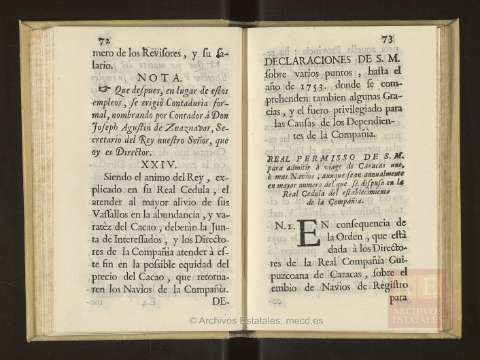 72
mero de los Revisores, y su sa-
lario.
NOTA.
☞ Que despues, en lugar de estos
empleos, se erigiò Contaduria for-
mal, nombrando por Contador à Don
Joseph Agustin de Zuaznavar, Se-
cretario del Rey nuestro Señor, que
oy es Director.
XXIV.
Siendo el animo del Rey, ex-
plicado en su Real Cedula, el
atender al mayor alivio de sus
Vassallos en la abundancia, y va-
ratèz del Cacao, deberàn la Jun-
ta de Interessados, y los Directo-
res de la Compañia atender à es-
te fin en la possible equidad del
precio del Cacao, que retorna-
ren los Navios de la Compañia.
DE-
73
DECLARACIONES DE S. M.
sobre varios puntos, hasta el
año de 1753. donde se com-
prehenden tambien algunas Gra-
cias, y el fuero privilegiado para
las Causas de los Dependien-
tes de la Compañia.
REAL PERMISSO DE S. M.
para admitir à viage de Caracas uno,
ò mas Navios, aunque sean anualmente
en mayor numero del que se dispuso en la
Real Cedula del establecimiento
de la Compañia.
N.1. EN consequencia de
la Orden, que està
dada à los Directo-
res de la Real Compañia Gui-
puzcoana de Caracas, sobre el
embio de Navios de Registro
para
ARCHIVOS
ESTATALES
© Archivos Estatales, mecd.es